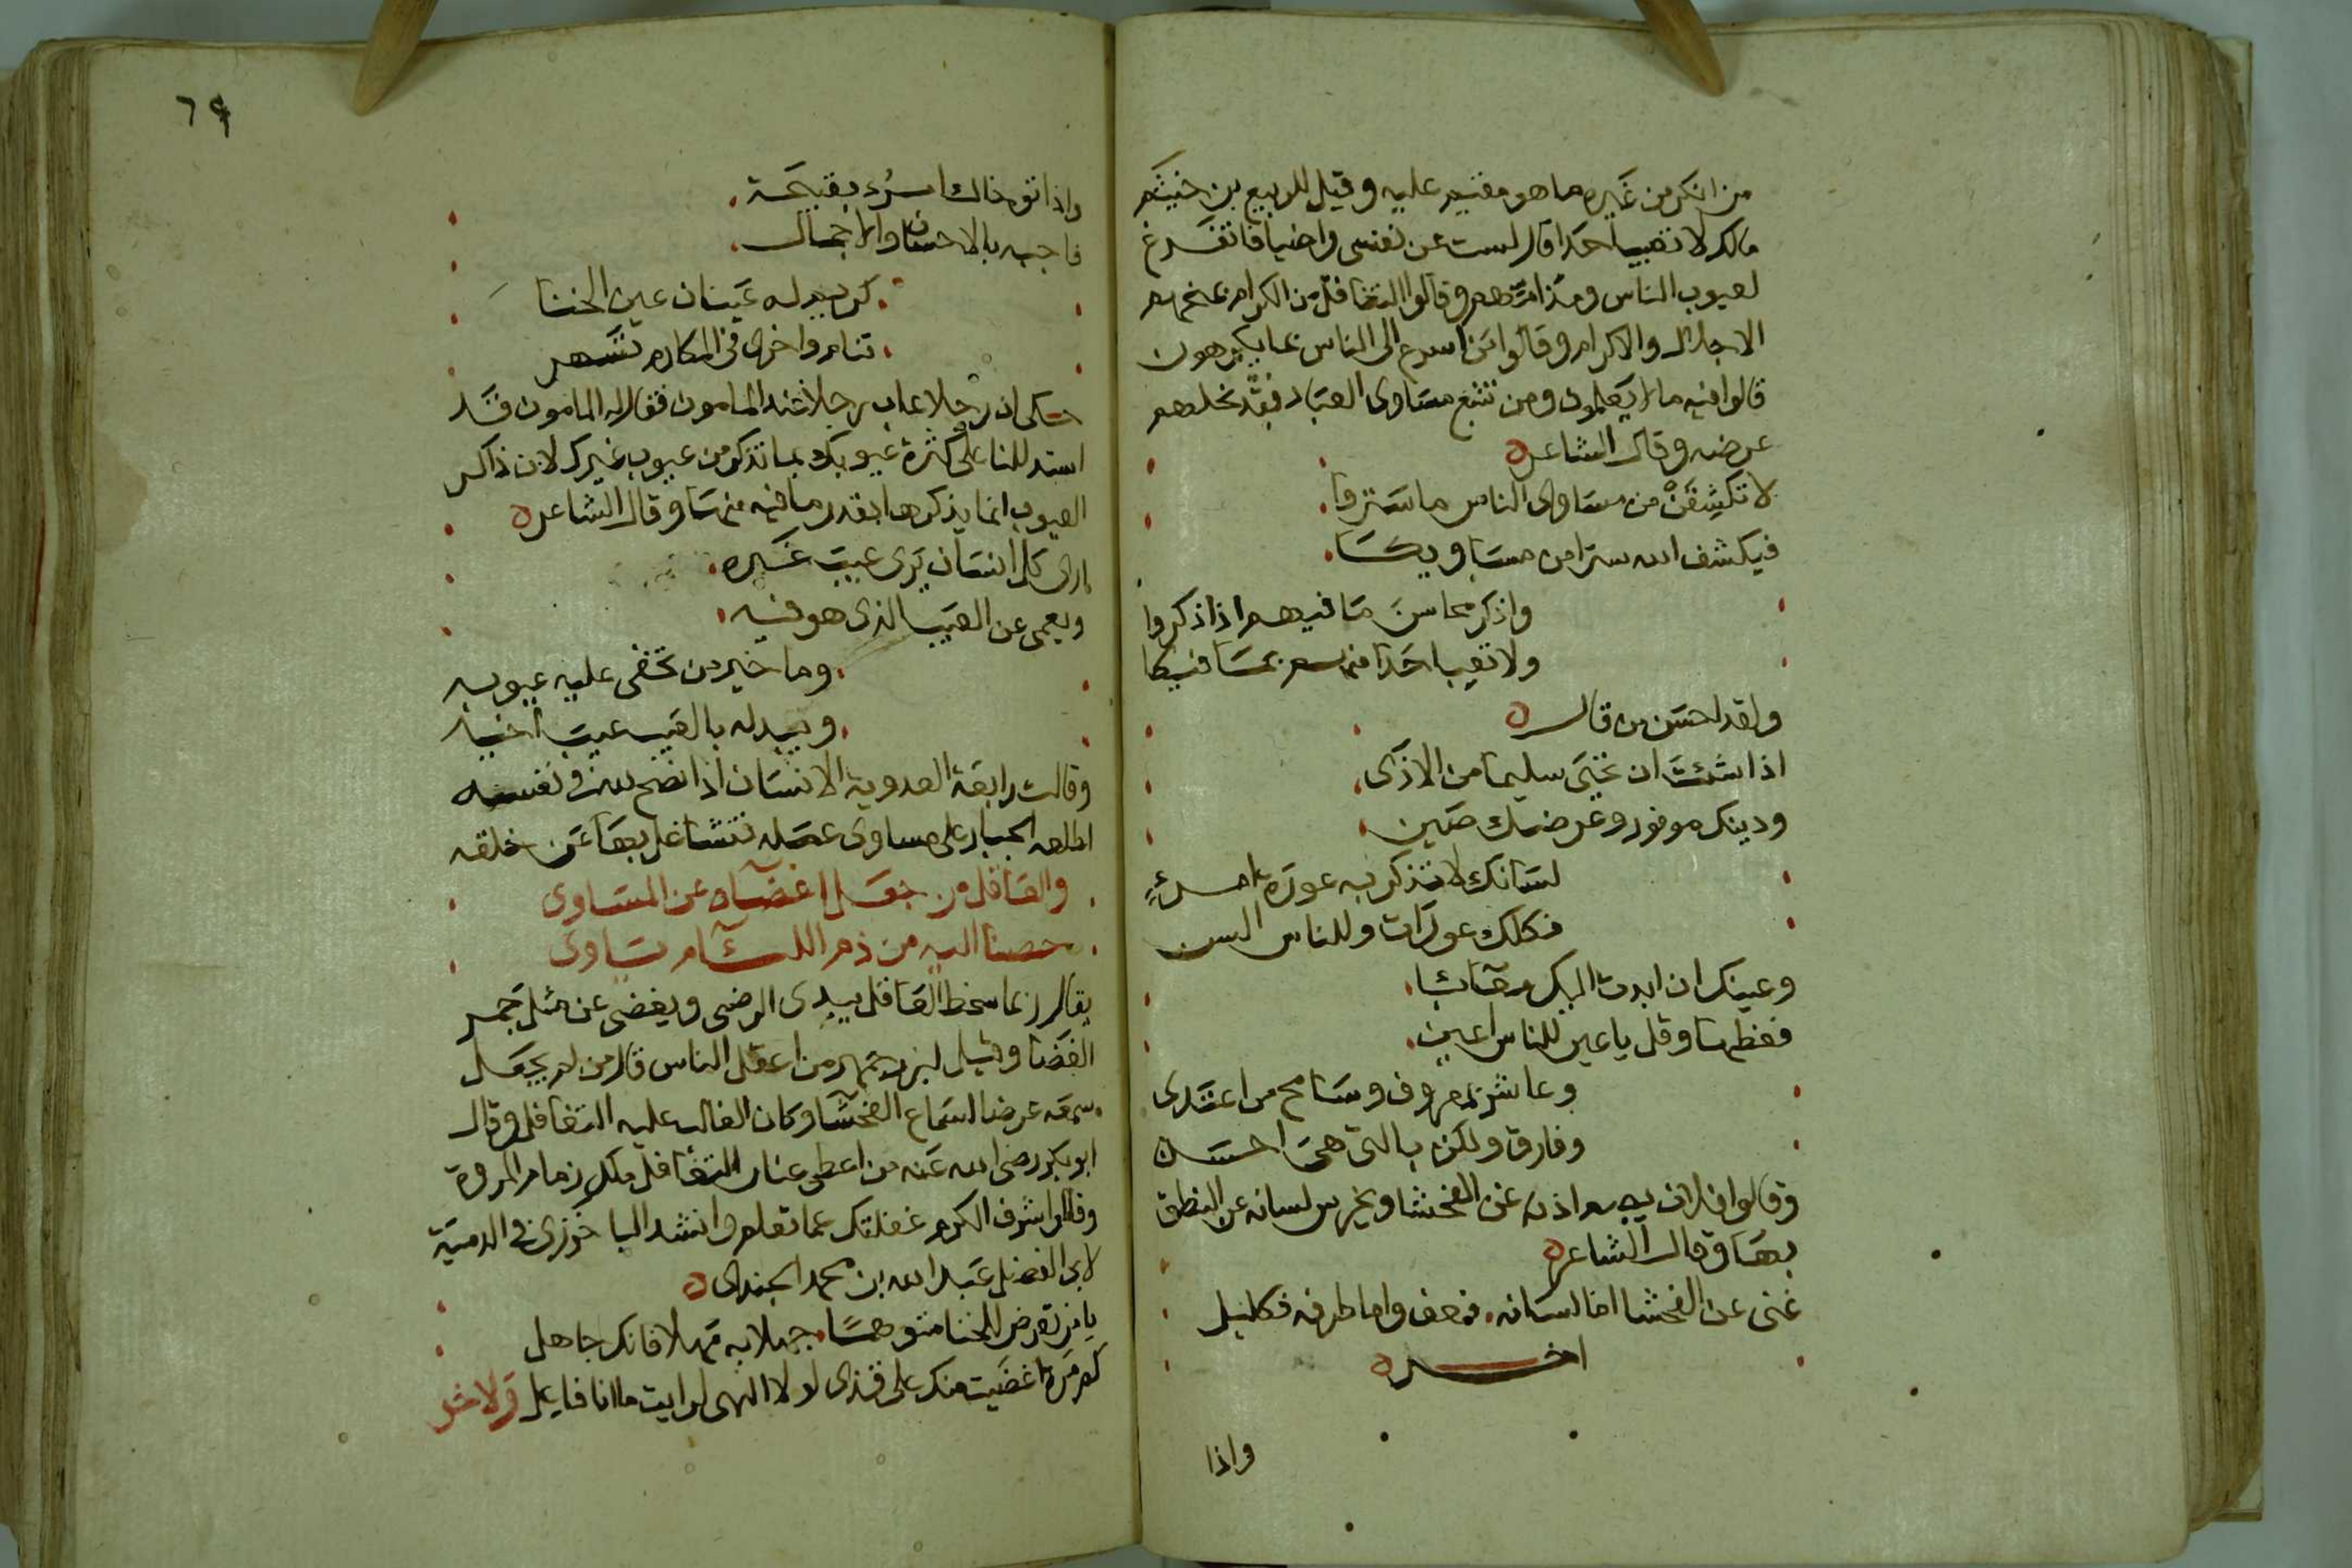 من انكر من غيره ما هو مقيم عليه وقيل للربيع بن خيثم
مالك لا تعيب احدا قال لست عن نفسى راضيا فاتفرغ
لعيوب الناس ومذامهم وقالوا التغافل من الكرام يمنحهم
الاجلال والاكرام وقالوا من اسرع الى الناس بما يكرهون
قالوا فيه ما لا يعلمون ومن تتبع مساوى العباد فقد نحلهم
عرضه وقال الشاعر ه
لا تكشفن من مساوى الناس ما ستروا
فيكشف الله سترا من مساويكا
واذكر محاسن ما فيهم اذا ذكروا
ولا تعب احدا منهم بما فيكا
ولقد احسن من قال ه
اذا شئت ان تحيى سليما من الاذى
ودينك موفور وعرضك صين
لسانك لا تذكر به عورة امرئٍ
فكلك عورات وللناس السن
وعينك ان ابدت اليك معائبا
فغطها وقل يا عين للناس اعين
وعاشر بمعروف وسامح من اعتدى
وفارق ولكن بالتى هى احسن
وقالوا فلان يصم اذنه عن الفحشا ويخرس لسانه عن النطق
بها وقال الشاعر ه
غنى عن الفحشا اما لسانه فعف واما طرفه فكليل
اخر ه
واذا
٦٩
واذا تو خاك امرؤ بقبيحة
فاجبه بالاحسان والاجمال
كريم له عينان عين الخنا
تنام واخرى فى المكارم تسهر
حكى ان رجلا عاب رجلا عند المامون فقال له المامون قد
استدللنا على كثرة عيوبك بما تذكر من عيوب غيرك لان ذاكر
العيوب انما يذكرها بقدر ما فيه منها وقال الشاعر ه
ارى كل انسان يرى عيب غيره
ويعمى عن العيب الذى هو فيه
وما خير من تخفى عليه عيوبه
ويبدو له بالعيب عيب اخيه
وقالت رابعة العدوية الانسان اذا نصح لله فى نفسه
اطلعه الجبار على مساوى عمله فتشاغل بها عن خلقه
والعاقل من جعل اغضاه عن المساوى
حصنا اليه من ذم اللئام ياوى
يقال ربما سخط العاقل يبدى الرضى ويغضى عن مثل جمر
الغضا وقيل لبزرجمهر من اعقل الناس قال من لم يجعل
سمعه غرضا لسماع الفحشا وكان الغالب عليه التغافل وقال
ابو بكر رضى الله عنه من اعطى عنان التغافل ملك زمام المروة
وقالوا شرف الكرم غفلتك عما تعلم وانشد الباخرزى فى الدمية
لابى الفضل عبد الله بن محمد الجندى ه
يا من تعرض للخنا متوهما جهلا به مهلا فانك جاهل
كم مرة اغضيت منك على قذى لولا النهى لرايت ما انا فاعل ولاخر